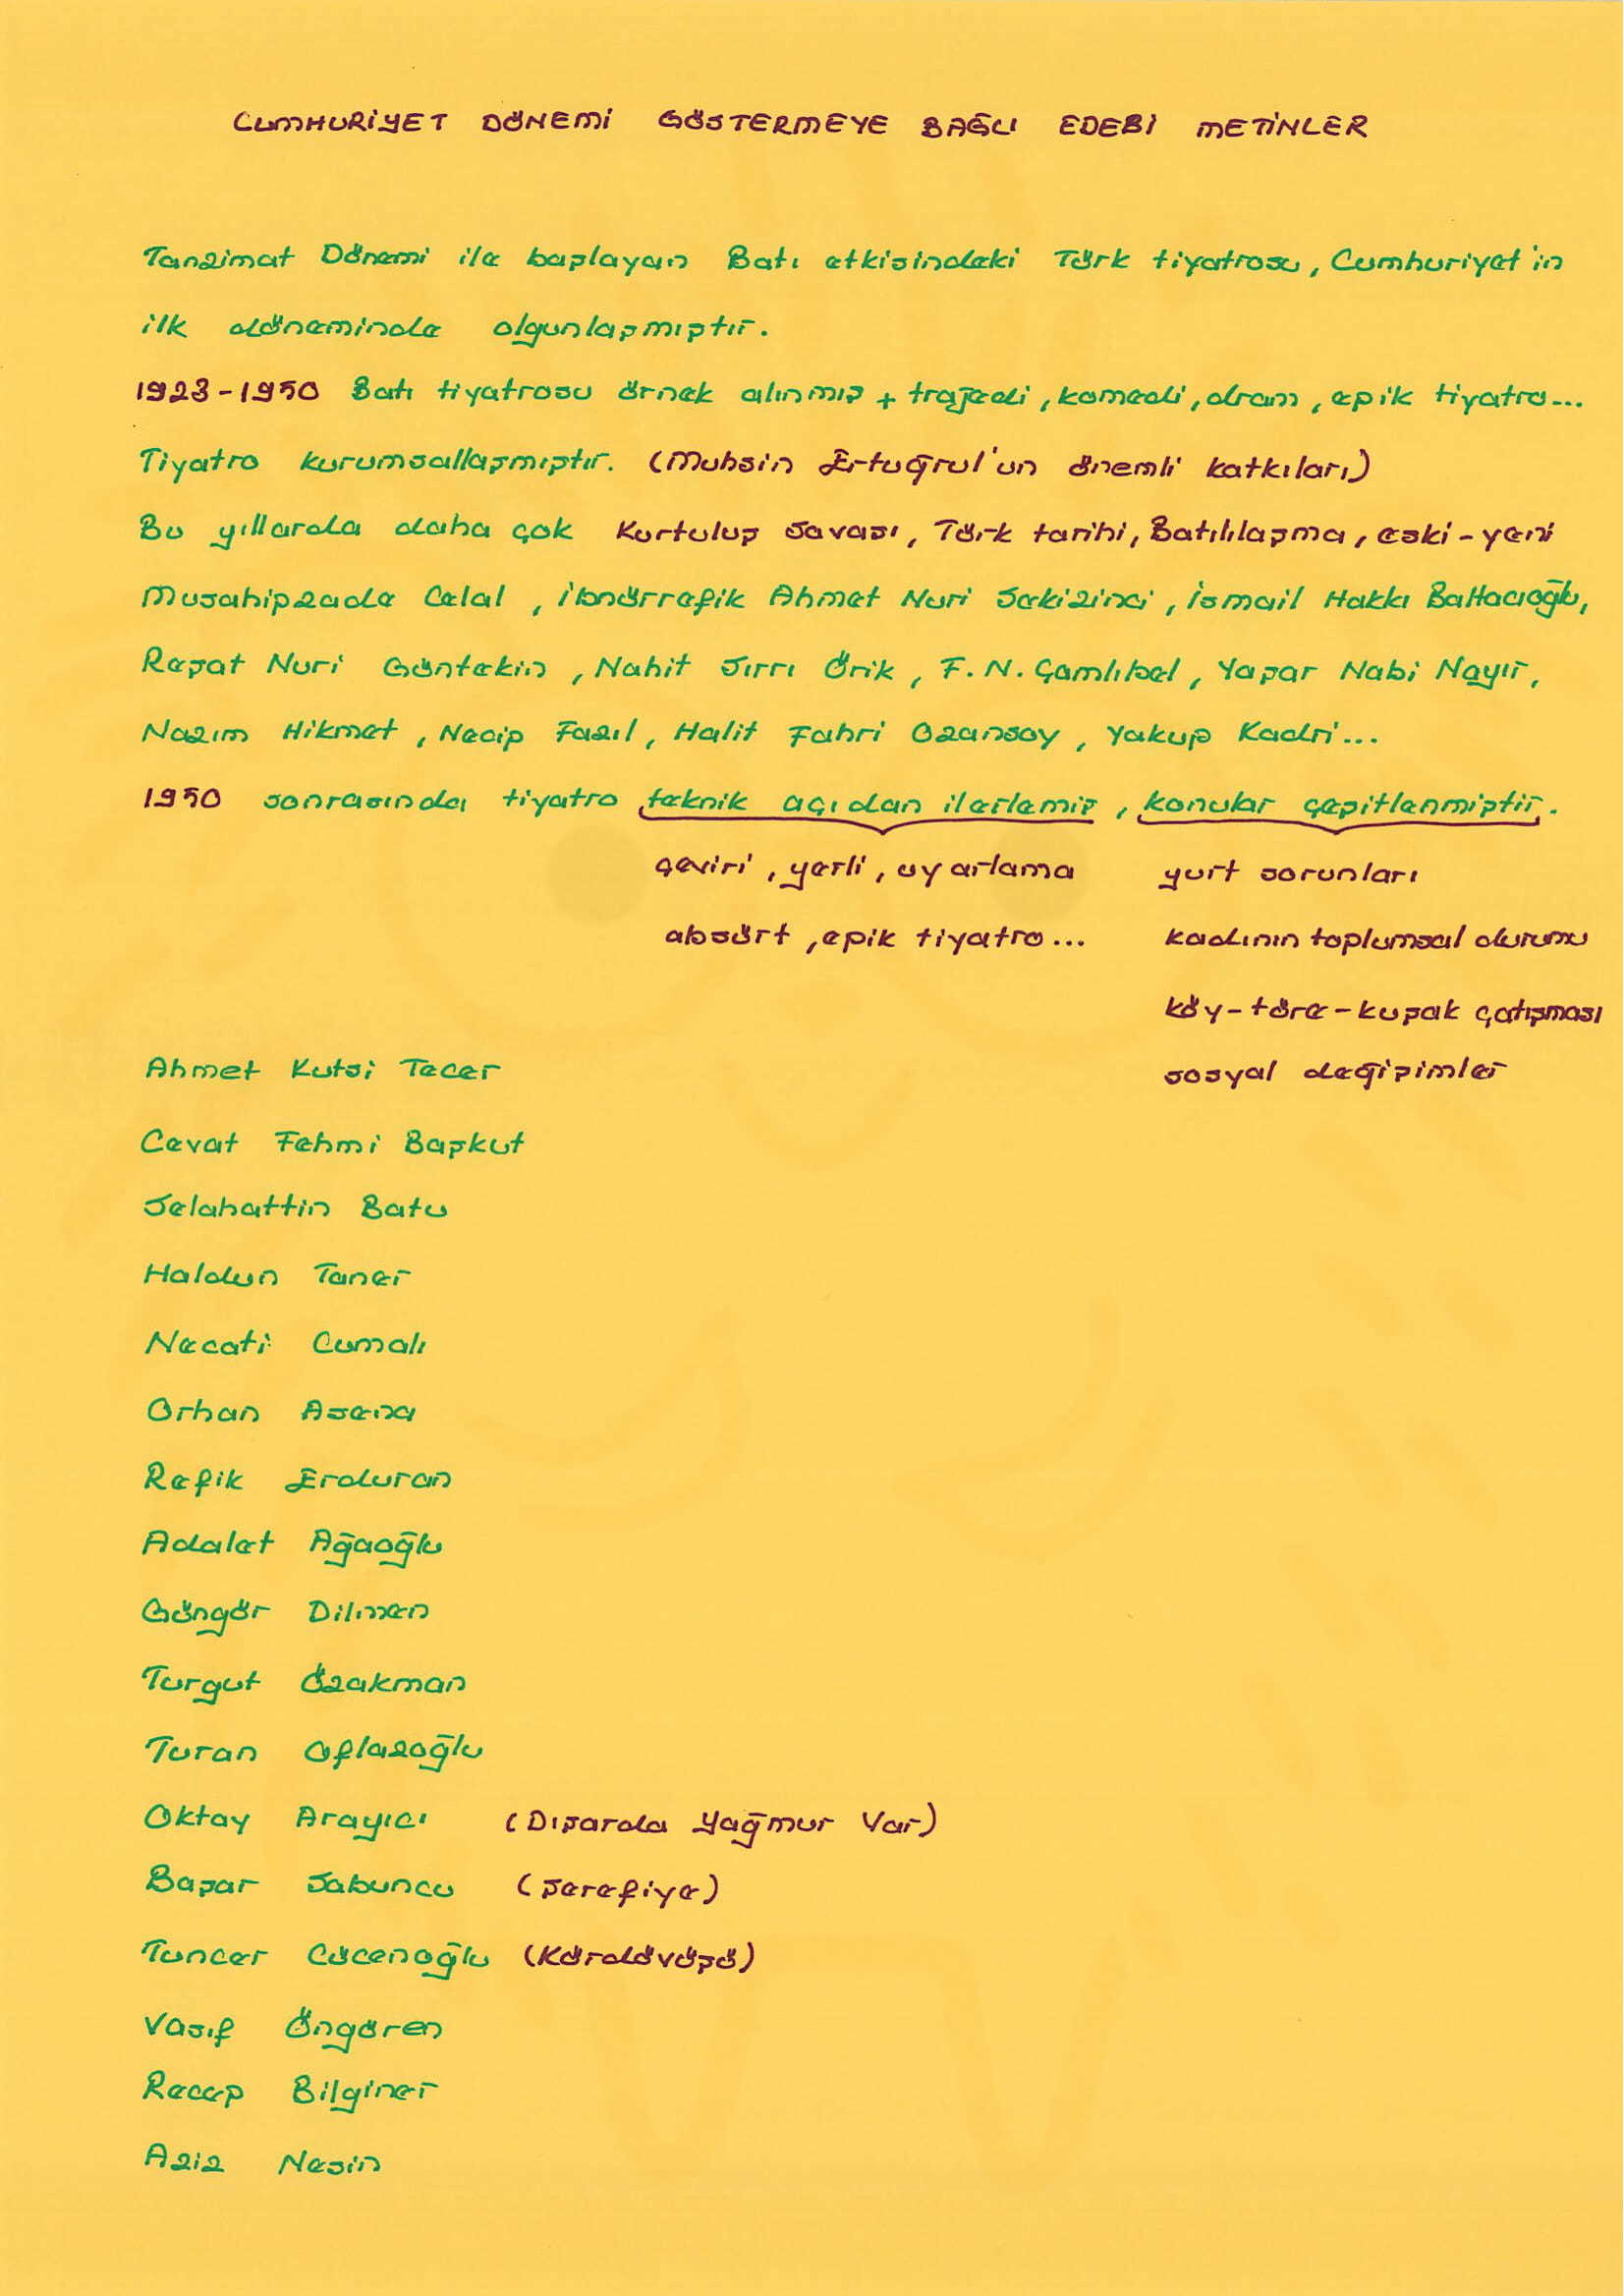 CUMHURİYET DÖNEMİ GÖSTERMEYE BAĞLI EDEBİ METİNLER
Tanzimat Dönemi ile başlayan Batı etkisindeki Türk tiyatrosu, Cumhuriyet'in
ilk döneminde olgunlaşmıştır.
1923-1950 Batı tiyatrosu örnek alınmış + trajedi, komedi, dram, epik tiyatro...
Tiyatro kurumsallaşmıştır. (Muhsin Ertuğrul'un önemli katkıları)
Bu yıllarda daha çok Kurtuluş Savaşı, Türk tarihi, Batılılaşma, eski-yeni
Musahipzade Celal, İbnürrefik Ahmet Nuri Sekizinci, İsmail Hakkı Baltacıoğlu,
Reşat Nuri Güntekin, Nahit Sırrı Örik, F. N. Çamlıbel, Yaşar Nabi Nayır,
Nazım Hikmet, Necip Fazıl, Halit Fahri Ozansoy, Yakup Kadri...
1950 sonrasında tiyatro teknik açıdan ilerlemiş, konular çeşitlenmiştir.
çeviri, yerli, uyarlama yurt sorunları
absürt, epik tiyatro... kadının toplumsal durumu
köy-töre-kuşak çatışması
Ahmet Kutsi Tecer sosyal değişimler
Cevat Fehmi Başkut
Selahattin Batu
Haldun Taner
Necati Cumalı
Orhan Asena
Refik Erduran
Adalet Ağaoğlu
Güngör Dilmen
Turgut Özakman
Turan Oflazoğlu
Oktay Arayıcı (Dışarda Yağmur Var)
Başar Sabuncu (Şerefiye)
Tuncer Cücenoğlu (Kördövüşü)
Vasıf Öngören
Recep Bilginer
Aziz Nesin